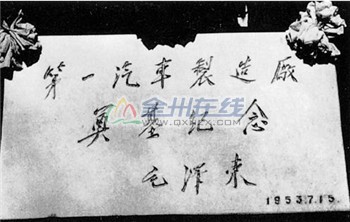 第一汽車製造廠
奠基纪念
毛泽东
1953.7.15.
金州在线
WWW.QXNEX.COM